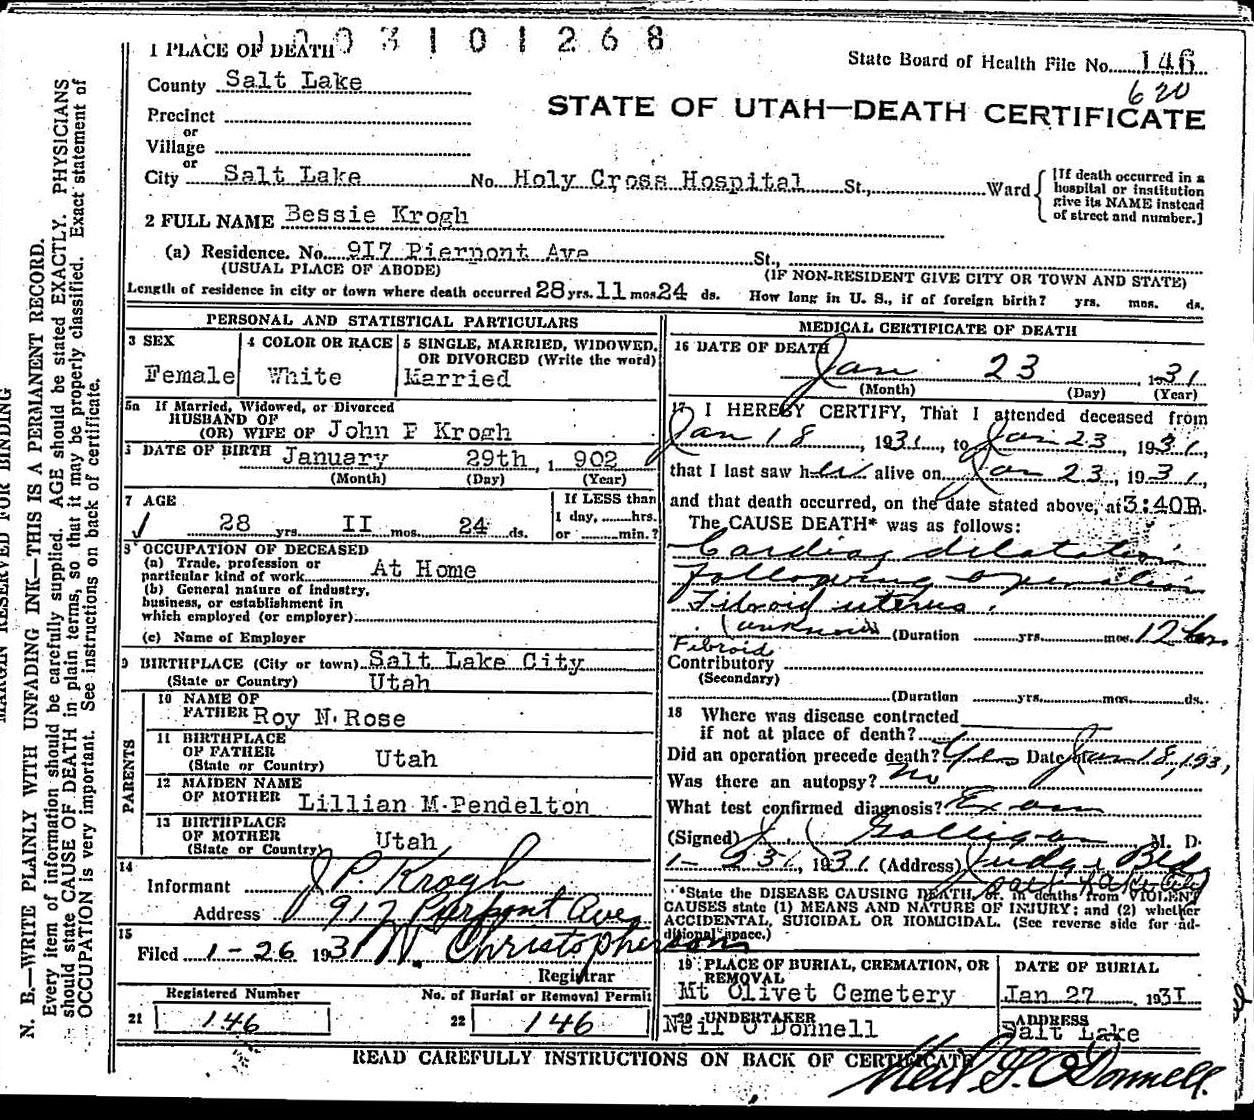 1003101268
State Board of Health File No. 146
620
STATE OF UTAH—DEATH CERTIFICATE
1 PLACE OF DEATH
County Salt Lake
Precinct
or
Village
or
City Salt Lake No. Holy Cross Hospital St., Ward
[If death occurred in a
hospital or institution
give its NAME instead
of street and number.]
2 FULL NAME Bessie Krogh
(a) Residence. No. 917 Pierpont Ave St.,
(USUAL PLACE OF ABODE) (IF NON-RESIDENT GIVE CITY OR TOWN AND STATE)
Length of residence in city or town where death occurred 28 yrs. 11 mos 24 ds. How long in U. S., if of foreign birth? yrs. mos. ds.
PERSONAL AND STATISTICAL PARTICULARS
3 SEX
Female
4 COLOR OR RACE
White
5 SINGLE, MARRIED, WIDOWED,
OR DIVORCED (Write the word)
Married
5a If Married, Widowed, or Divorced
HUSBAND OF
(OR) WIFE OF John P Krogh
DATE OF BIRTH January 29th, 1902
(Month) (Day) (Year)
7 AGE
28 yrs. II mos. 24 ds.
If LESS than
1 day, hrs.
or min.?
8 OCCUPATION OF DECEASED
(a) Trade, profession or
particular kind of work At Home
(b) General nature of industry,
business, or establishment in
which employed (or employer)
(c) Name of Employer
9 BIRTHPLACE (City or town) Salt Lake City
(State or Country) Utah
PARENTS
10 NAME OF
FATHER Roy N. Rose
11 BIRTHPLACE
OF FATHER
(State or Country) Utah
12 MAIDEN NAME
OF MOTHER Lillian M. Pendelton
13 BIRTHPLACE
OF MOTHER
(State or Country) Utah
14
Informant J P. Krogh
Address 917 Pierpont Ave
15
Filed 1-26 1931 N. Christopherson
Registrar
Registered Number
21 146
No. of Burial or Removal Permit
22 146
MEDICAL CERTIFICATE OF DEATH
16 DATE OF DEATH
Jan 23, 1931
(Month) (Day) (Year)
17 I HEREBY CERTIFY, That I attended deceased from
Jan 18, 1931, to Jan 23, 1931,
that I last saw her alive on Jan 23, 1931,
and that death occurred, on the date stated above, at 3:40P.m.
The CAUSE DEATH* was as follows:
Cardiac dilatation
following operation
Fibroid uterus.
(unknown (Duration yrs. mos. 12 hrs
Fibroid
Contributory
(Secondary)
(Duration yrs. mos. ds.
18 Where was disease contracted
if not at place of death?
Did an operation precede death? Yes Date Jan 18, 1931
Was there an autopsy? no
What test confirmed diagnosis? Exam
(Signed) J. J. Galligan M. D.
1-23, 1931 (Address) Judge Bldg
Salt Lake City
*State the DISEASE CAUSING DEATH, or, in deaths from VIOLENT
CAUSES state (1) MEANS AND NATURE OF INJURY; and (2) whether
ACCIDENTAL, SUICIDAL OR HOMICIDAL. (See reverse side for ad-
ditional space.)
19 PLACE OF BURIAL, CREMATION, OR
REMOVAL
Mt Olivet Cemetery
DATE OF BURIAL
Jan 27 1931
20 UNDERTAKER
Neil O'Donnell
ADDRESS
Salt Lake
READ CAREFULLY INSTRUCTIONS ON BACK OF CERTIFICATE
Neil G. O'Donnell.
MARGIN RESERVED FOR BINDING
N. B.—WRITE PLAINLY WITH UNFADING INK—THIS IS A PERMANENT RECORD.
Every item of information should be carefully supplied. AGE should be stated EXACTLY. PHYSICIANS
should state CAUSE OF DEATH in plain terms, so that it may be properly classified. Exact statement of
OCCUPATION is very important. See instructions on back of certificate.